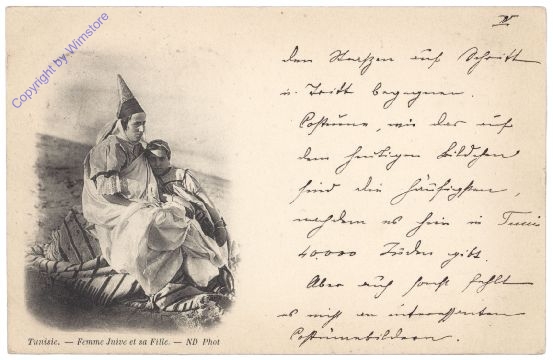 IV
den Straßen auf Schritt
u. Tritt begegnen.
Costüme, wie das auf
dem heutigen Bildchen
sind die häufigsten,
nachdem es hier in Tunis
40000 Juden gibt.
Aber auch sonst fehlt
es nicht an interessanten
Costümebildern.
Tunisie. — Femme Juive et sa Fille. — ND Phot
Copyright by Wimstore